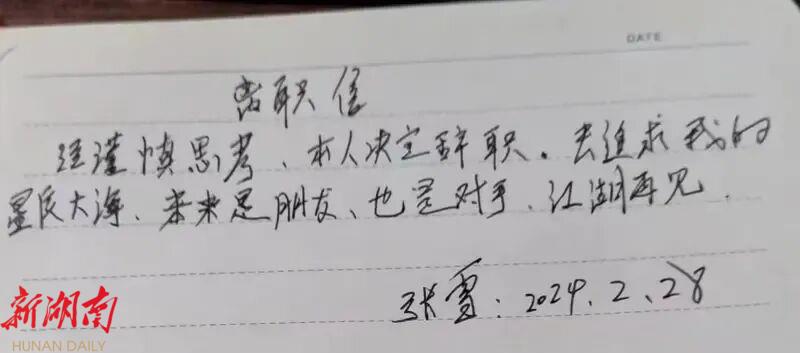 DATE
离职信
经谨慎思考、本人决定辞职。去追求我的
星辰大海、未来是朋友、也是对手、江湖再见.
张雪: 2024.2.28
新湖南
HUNAN DAILY